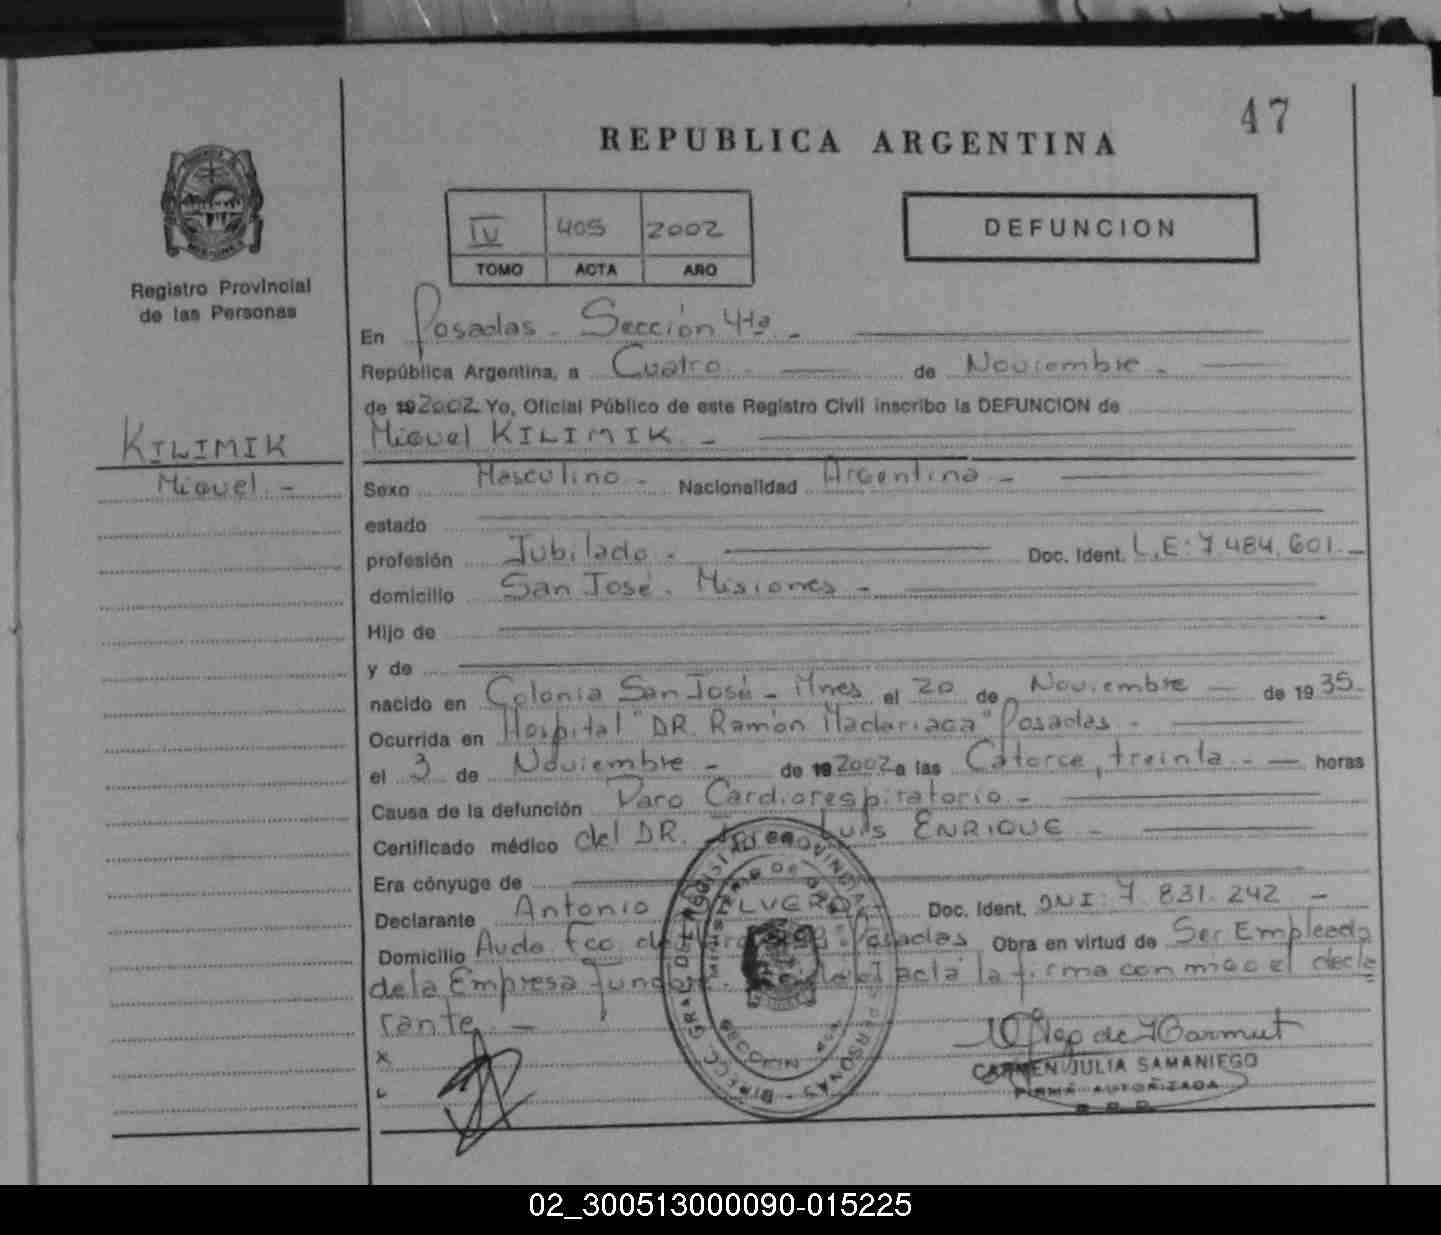 47
REPUBLICA ARGENTINA
IV 405 2002
TOMO ACTA AÑO
DEFUNCION
Registro Provincial
de las Personas
KILIMIK
Miguel.-
En Posadas - Sección 4ta.-
República Argentina, a Cuatro.- de Noviembre.-
de 19 2002 Yo, Oficial Público de este Registro Civil inscribo la DEFUNCION de
Miguel KILIMIK.-
Sexo Masculino.- Nacionalidad Argentina.-
estado
profesión Jubilado.- Doc. Ident. L.E: 7.484.601.-
domicilio San José. Misiones.-
Hijo de
y de
nacido en Colonia San José - Mnes. el 20 de Noviembre - de 19 35.-
Ocurrida en Hospital "DR. Ramón Madariaga" Posadas.-
el 3 de Noviembre.- de 19 2002 a las Catorce, treinta.- horas
Causa de la defunción Paro Cardiorespiratorio.-
Certificado médico del DR. Luis ENRIQUE.-
Era cónyuge de
Declarante Antonio Doc. Ident. DNI: 7.831.242.-
Domicilio Avda. Fco. de Posadas Obra en virtud de Ser Empleado
de la Empresa acta la firma conmigo el decla
rante.-
CARMEN JULIA SAMANIEGO
FIRMA AUTORIZADA
02_300513000090-015225